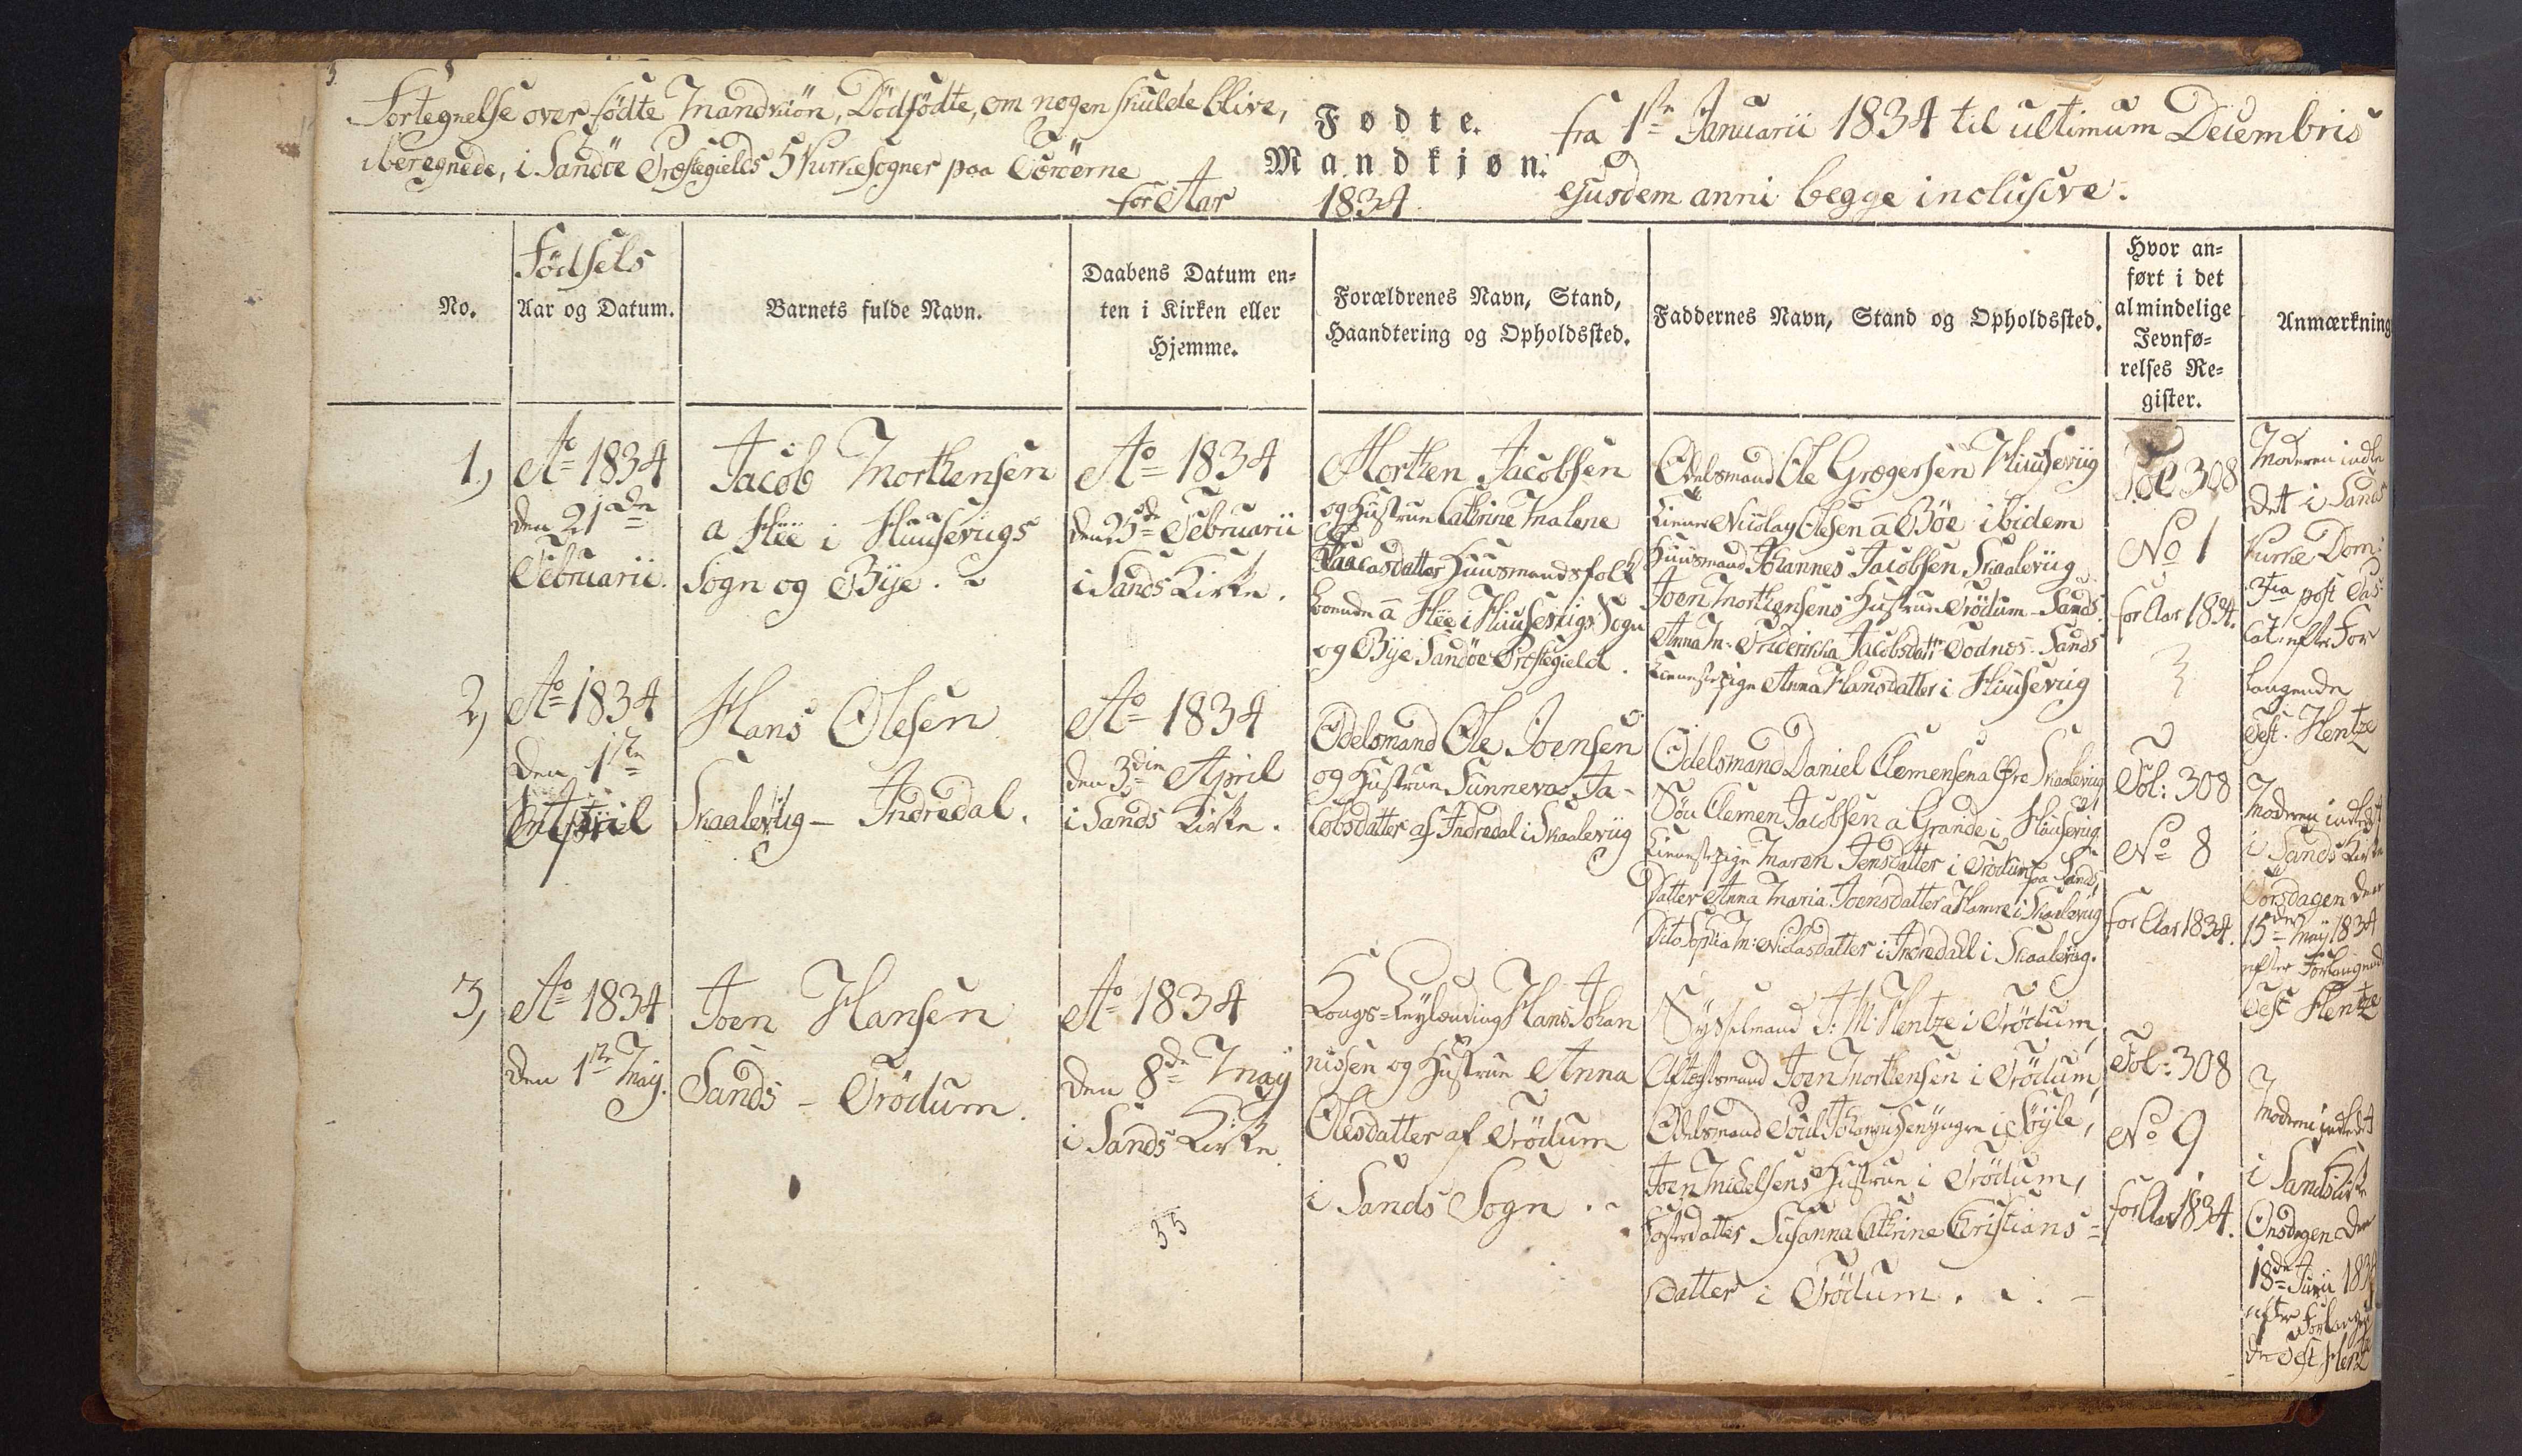 Fortegnelse over fødte Mandkiön, Dödfödte, om nogen skulde blive,
iberegnede, i Sandöe Præstegields 5 Kirkesogner paa Færöerne
for Aar 1834.
Fødte.
Mandkjøn.
fra 1ste Januarii 1834 til ultimum Decembris
ejusdem anni begge inclusive.
No.
Födsels
Aar og Datum.
Barnets fulde Navn.
Daabens Datum en-
ten i Kirken eller
Hjemme.
Forældrenes Navn, Stand,
Haandtering og Opholdssted.
Faddernes Navn, Stand og Opholdssted.
Hvor an-
ført i det
almindelige
Jevnfø-
relses Re-
gister.
Anmærkning
1,
Ao 1834
den 21de
Februarii.
Jacob Morthensen
a Flee i Huusevigs
Sogn og Bye.
Ao 1834
den 25de Februarii
i Sands Kirke.
Morthen Jacobsen
og Hustrue Cathrine Malene
Huusmandsfolk
boende a Flee i Huusevigs Sogn
og Bye Sandöe Præstegield.
Odelsmand Ole Grægersen Huuseviig
Tiener Nicolay Olesen a Böe ibidem
Huusmand Johannes Jacobsen Skaaleviig
Joen Morthensens Hustrue Trödum - Sands
Anna M. Friderikka Jacobsdatr Todnæs. Sands
Tienestepige Anna Hansdatter i Huusevig
Fol 308
No 1
for Aar 1834.
Moderen indle
det i Sands
Kirke Dom:
3tia post Pas
cat: efter For
langende
test. Hentze
2,
Ao 1834
den 1ste
April
Hans Olesen
Skaalevig - Indredal.
Ao 1834
den 3die April
i Sands Kirke.
Odelsmand Ole Joensen
og Hustrue Sunneva Ja-
cobsdatter af Indredal i Skaaleviig
Odelsmand Daniel Clemensen a Öre Skaalevig
Sön Clemen Jacobsen a Grande i Huusevig,
Tienestepige Maren Jensdatter i Trödum paa Sand,
Datter Anna Maria Joensdatter a Hamre i Skaalevig
Dito Sophia M: Niclasdatter i Indredahl i Skaalevig.
Fol: 308
No 8
for Aar 1834.
Moderen indledt
i Sands Kirke
Torsdagen den
15de May 1834
efter Forlangende
test Hentze
3,
Ao 1834
den 1ste May.
Joen Hansen
Sands - Trödum.
Ao 1834
den 8de May
i Sands Kirke
35
Kongs-Leylænding Hans Johan
nissen og Hustrue Anna
Olesdatter af Trödum
i Sands Sogn.
Sysselmand J: M: Hentze i Trödum,
Aftægtsmand Joen Morthensen i Trödum,
Odelsmand Poul Johannesen yngre i Söyle,
Joen Michelsens Hustrue i Trödum,
Fosterdatter Susanna Cathrine Christians-
datter i Trödum.
Fol: 308
No 9
for Aar 1834.
Moderen indledt
i Sands Kirke
Onsdagen den
18de Junii 1834
efter Forlangen
de test. Hentze